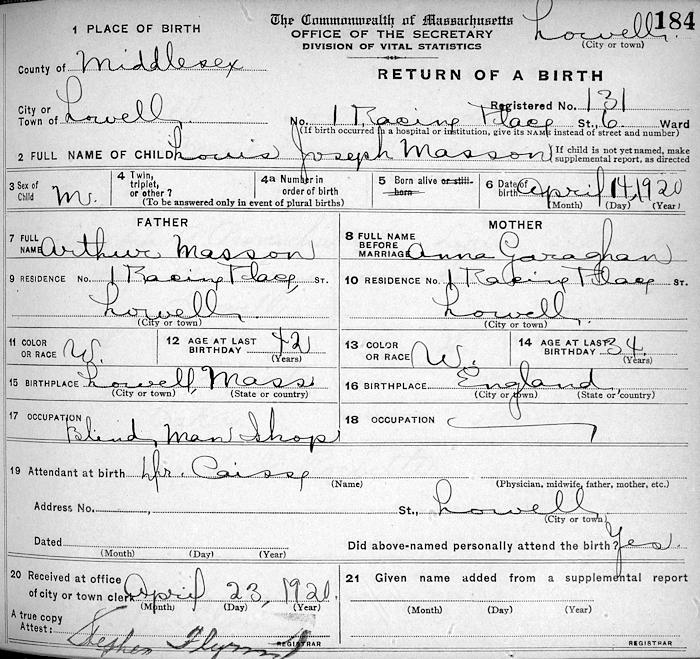 184
The Commonwealth of Massachusetts
OFFICE OF THE SECRETARY
DIVISION OF VITAL STATISTICS
Lowell
(City or town)
1 PLACE OF BIRTH
County of Middlesex
RETURN OF A BIRTH
Registered No. 131
City or Town of Lowell
No. 1 Racine Place St., 6 Ward
(If birth occurred in a hospital or institution, give its NAME instead of street and number)
2 FULL NAME OF CHILD Louis Joseph Masson
If child is not yet named, make supplemental report, as directed
3 Sex of Child M.
4 Twin, triplet, or other ?
4a Number in order of birth
(To be answered only in event of plural births)
5 Born alive or still-born
6 Date of birth April 14, 1920
(Month) (Day) (Year)
FATHER
MOTHER
7 FULL NAME Arthur Masson
8 FULL NAME BEFORE MARRIAGE Anna Garaghan
9 RESIDENCE No. 1 Racine Place ST.
Lowell
(City or town)
10 RESIDENCE No. 1 Racine Place ST.
Lowell
(City or town)
11 COLOR OR RACE W.
12 AGE AT LAST BIRTHDAY 42
(Years)
13 COLOR OR RACE W.
14 AGE AT LAST BIRTHDAY 34
(Years)
15 BIRTHPLACE Lowell, Mass
(City or town) (State or country)
16 BIRTHPLACE England
(City or town) (State or country)
17 OCCUPATION Blind Man Shop
18 OCCUPATION
19 Attendant at birth Dr. Caisse
(Name)
(Physician, midwife, father, mother, etc.)
Address No. , St., Lowell
(City or town)
Dated
(Month) (Day) (Year)
Did above-named personally attend the birth? Yes
20 Received at office of city or town clerk April 23, 1920
(Month) (Day) (Year)
21 Given name added from a supplemental report
(Month) (Day) (Year)
A true copy
Attest: Stephen Flynn
REGISTRAR
REGISTRAR